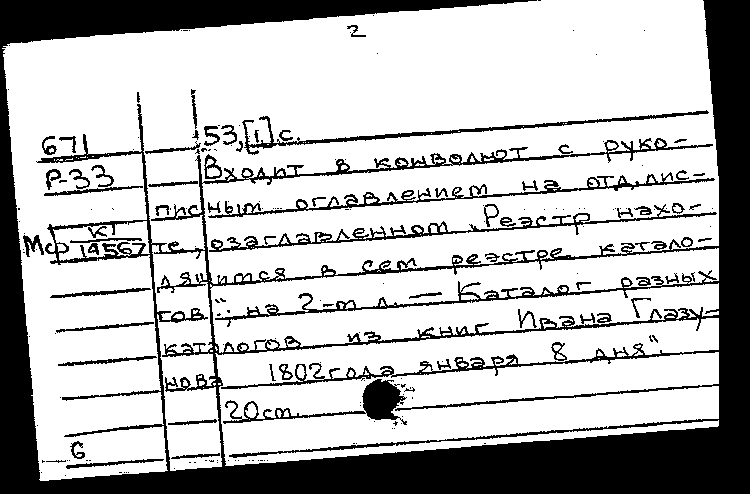 2
671 53,[1] с.
Р-33 Входит в конволют с руко-
писным оглавлением на отд. лис-
Мф К1 14567 те, озаглавленном „Реэстр нахо-
дящимся в сем реэстре катало-
гов“; на 2-м л. — Каталог разных
каталогов из книг Ивана Глазу-
нова 1802 года января 8 дня“.
20 см.
6